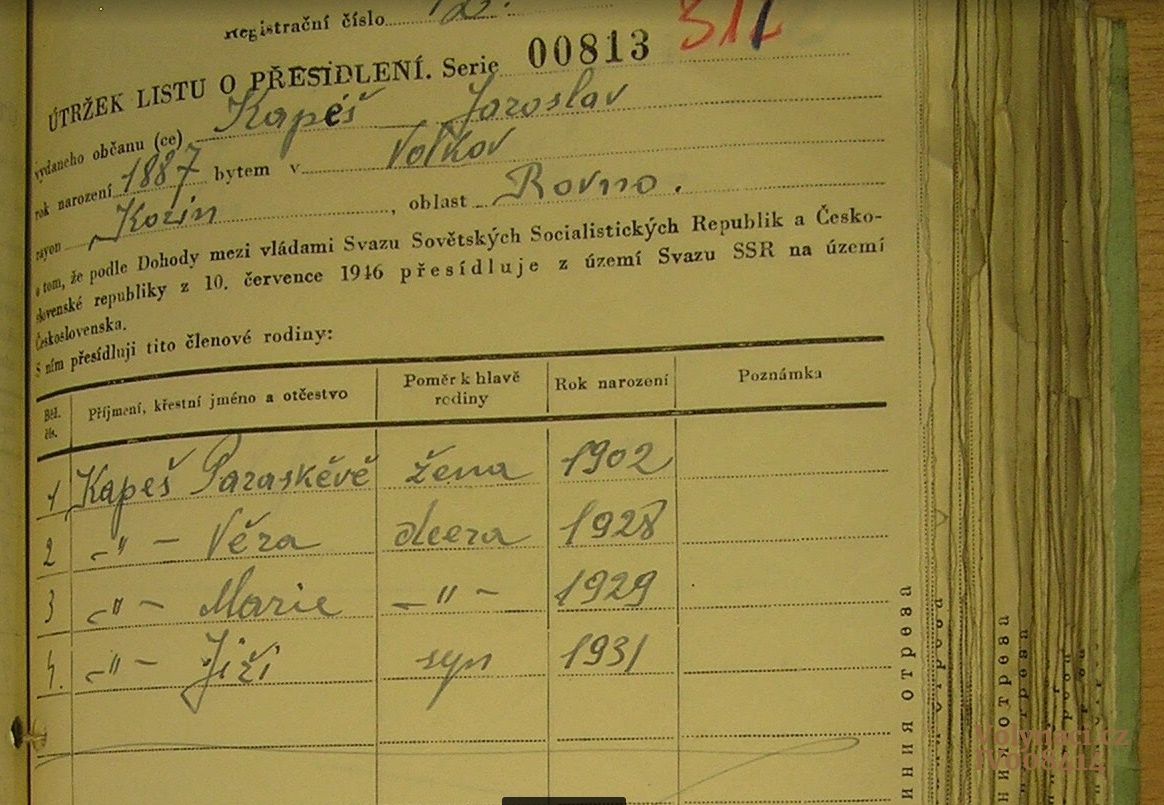 Registrační číslo 12.
ÚTRŽEK LISTU O PŘESIDLENÍ. Serie 00813 312
vydaného občanu (ce) Kapéš Jaroslav
rok narození 1887 bytem v Volkov
rayon Kozin, oblast Rovno.
o tom, že podle Dohody mezi vládami Svazu Sovětských Socialistických Republik a Česko-
slovenské republiky z 10. července 1946 přesídluje z území Svazu SSR na území
Československa.
S ním přesídluji tito členové rodiny:
Běž. čís. Příjmení, křestní jméno a otčestvo Poměr k hlavě rodiny Rok narození Poznámka
1 Kapeš Paraskévě žena 1902
2 -"- Věra dcera 1928
3 -"- Marie -"- 1929
4. -"- Jiží syn 1931
иния отрева
ния отрева
Volynaci.cz